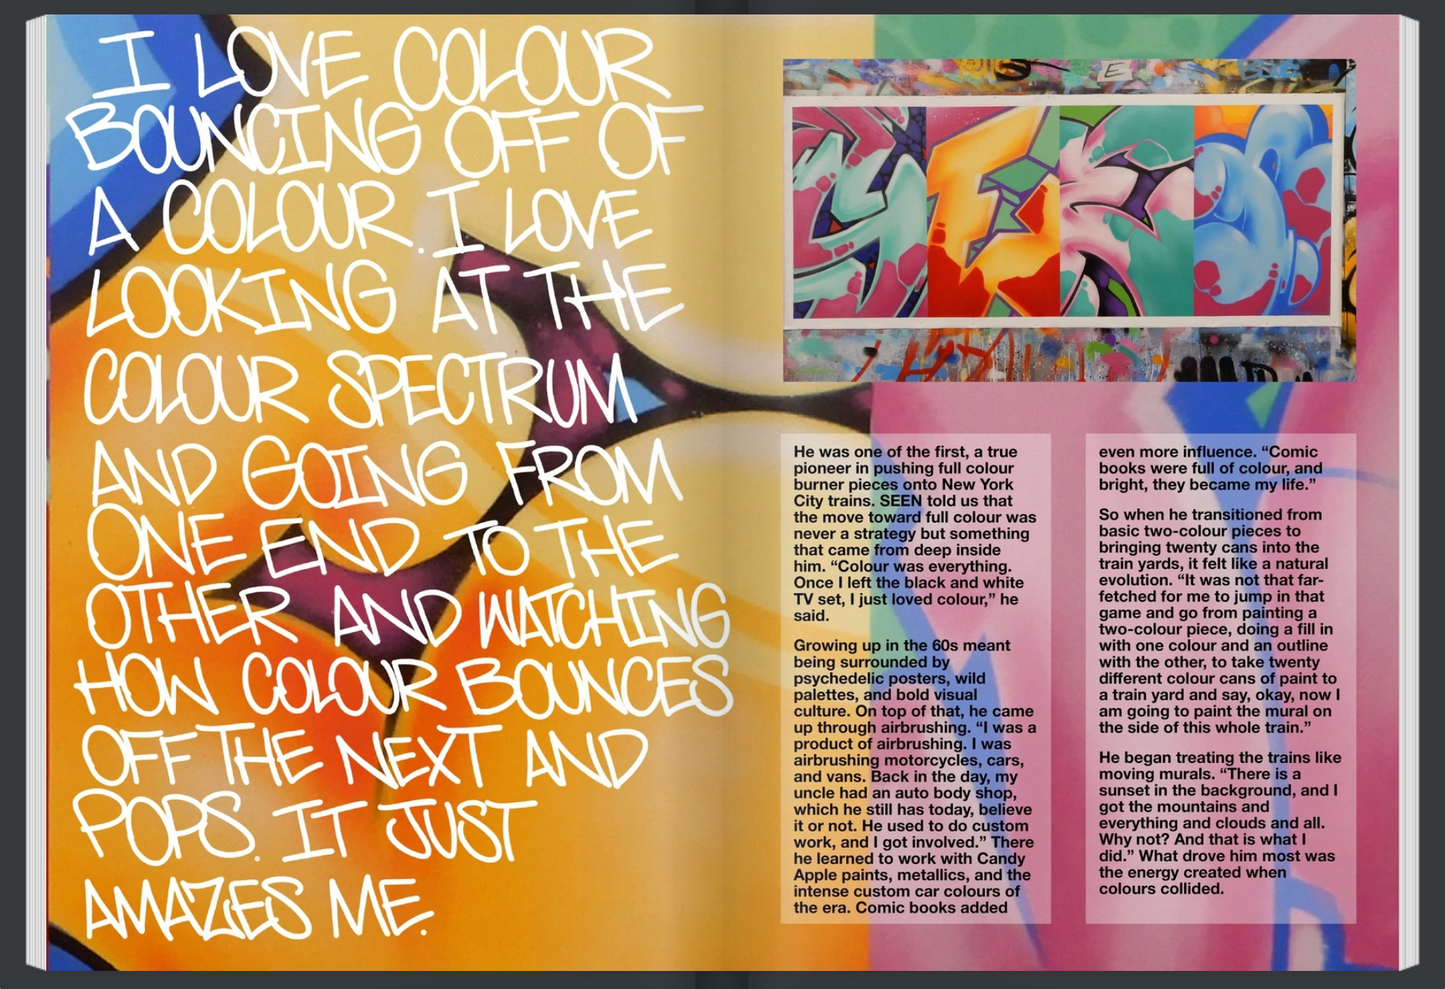 I LOVE COLOUR
BOUNCING OFF OF
A COLOUR. I LOVE
LOOKING AT THE
COLOUR SPECTRUM
AND GOING FROM
ONE END TO THE
OTHER AND WATCHING
HOW COLOUR BOUNCES
OFF THE NEXT AND
POPS. IT JUST
AMAZES ME.
S E
He was one of the first, a true
pioneer in pushing full colour
burner pieces onto New York
City trains. SEEN told us that
the move toward full colour was
never a strategy but something
that came from deep inside
him. “Colour was everything.
Once I left the black and white
TV set, I just loved colour,” he
said.
Growing up in the 60s meant
being surrounded by
psychedelic posters, wild
palettes, and bold visual
culture. On top of that, he came
up through airbrushing. “I was a
product of airbrushing. I was
airbrushing motorcycles, cars,
and vans. Back in the day, my
uncle had an auto body shop,
which he still has today, believe
it or not. He used to do custom
work, and I got involved.” There
he learned to work with Candy
Apple paints, metallics, and the
intense custom car colours of
the era. Comic books added
even more influence. “Comic
books were full of colour, and
bright, they became my life.”
So when he transitioned from
basic two-colour pieces to
bringing twenty cans into the
train yards, it felt like a natural
evolution. “It was not that far-
fetched for me to jump in that
game and go from painting a
two-colour piece, doing a fill in
with one colour and an outline
with the other, to take twenty
different colour cans of paint to
a train yard and say, okay, now I
am going to paint the mural on
the side of this whole train.”
He began treating the trains like
moving murals. “There is a
sunset in the background, and I
got the mountains and
everything and clouds and all.
Why not? And that is what I
did.” What drove him most was
the energy created when
colours collided.